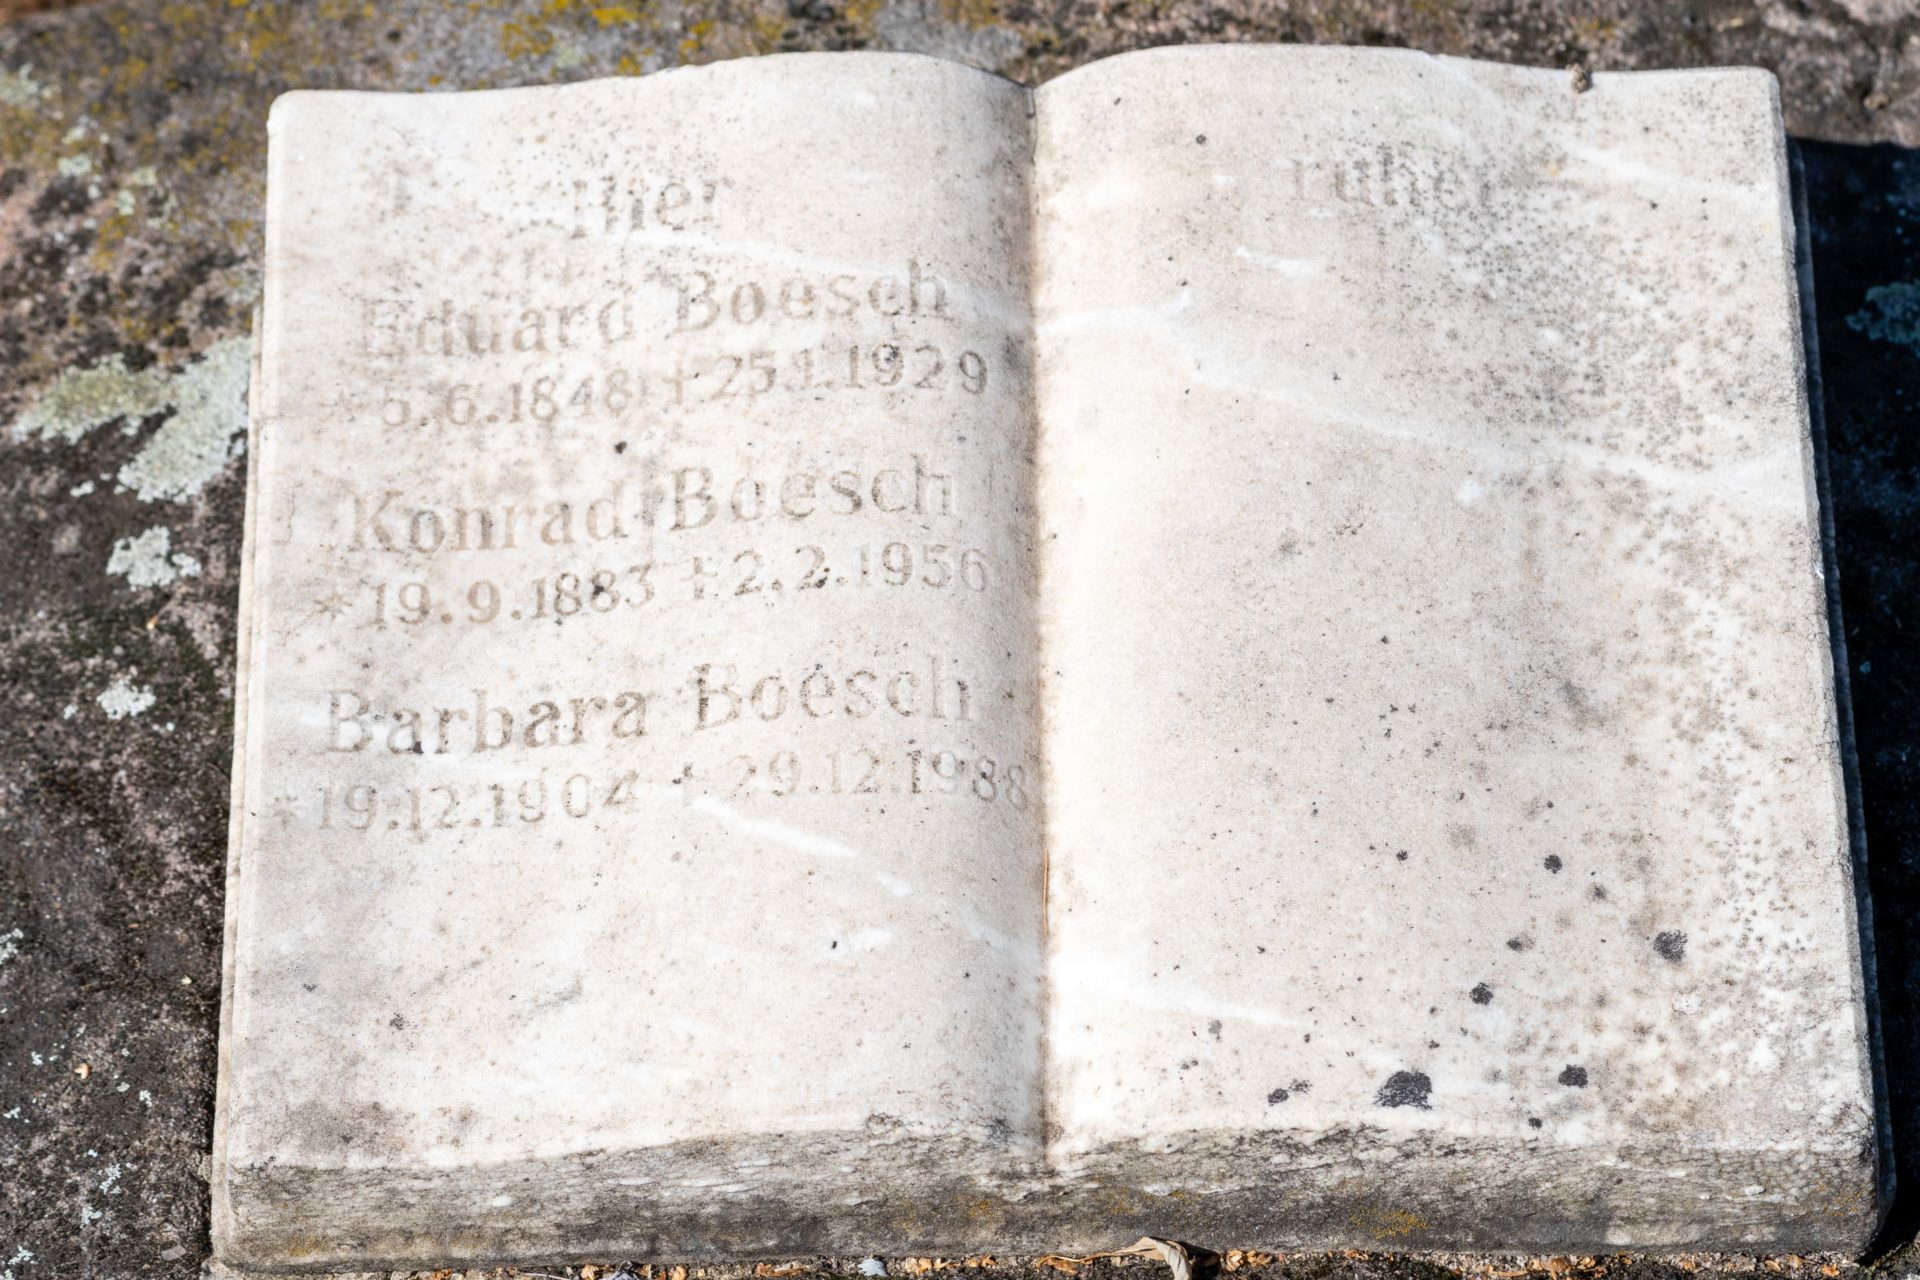 Hier
Eduard Boesch
* 5.6.1848 † 25.1.1929
Konrad Boesch
* 19.9.1883 † 2.2.1956
Barbara Boesch
* 19.12.1904 † 29.12.1988
ruhen